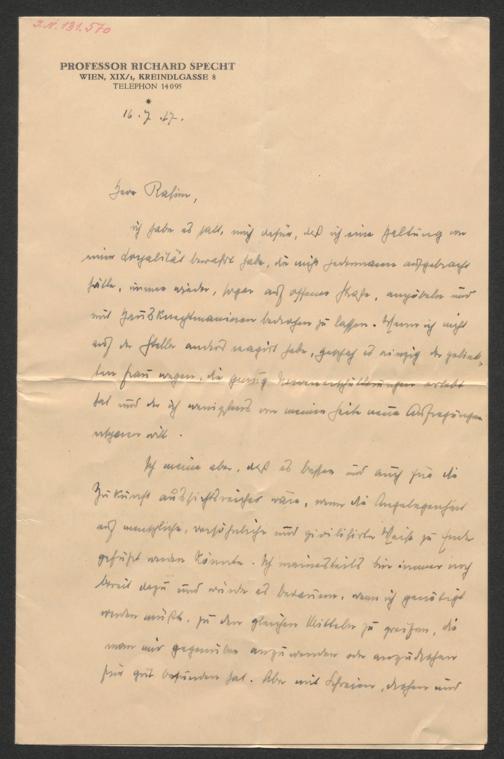 I.N. 131.570
PROFESSOR RICHARD SPECHT
WIEN, XIX/1, KREINDLGASSE 8
TELEPHON 14095
*
16. 7. 27.
Herr Rafin,
ich habe es satt, mich dafür, daß ich eine Haltung von
einer Loyalität bewahrt habe, die nicht jedermann aufgebracht
hätte, immer wieder, sogar auf offener Straße, anpöbeln und
mit Hausknechtmanieren bedrohen zu lassen. Wenn ich nicht
auf der Stelle anders reagirt habe, geschah es einzig der geliebten
Frau wegen, die genug Nervenerschütterungen erlebt
hat und der ich wenigstens von meiner Seite neue Aufregungen
ersparen will.
Ich meine aber, daß es besser und auch für die
Zukunft aussichtsreicher wäre, wenn die Angelegenheit
auf menschliche, versöhnliche und zivilisirte Weise zu Ende
geführt werden könnte. Ich meinesteils bin immer noch
bereit dazu und würde es bedauern, wenn ich genötigt
werden müßte, zu den gleichen Mitteln zu greifen, die
man mir gegenüber anzuwenden oder anzudrohen
für gut befunden hat. Aber mit Schreien, drohen und